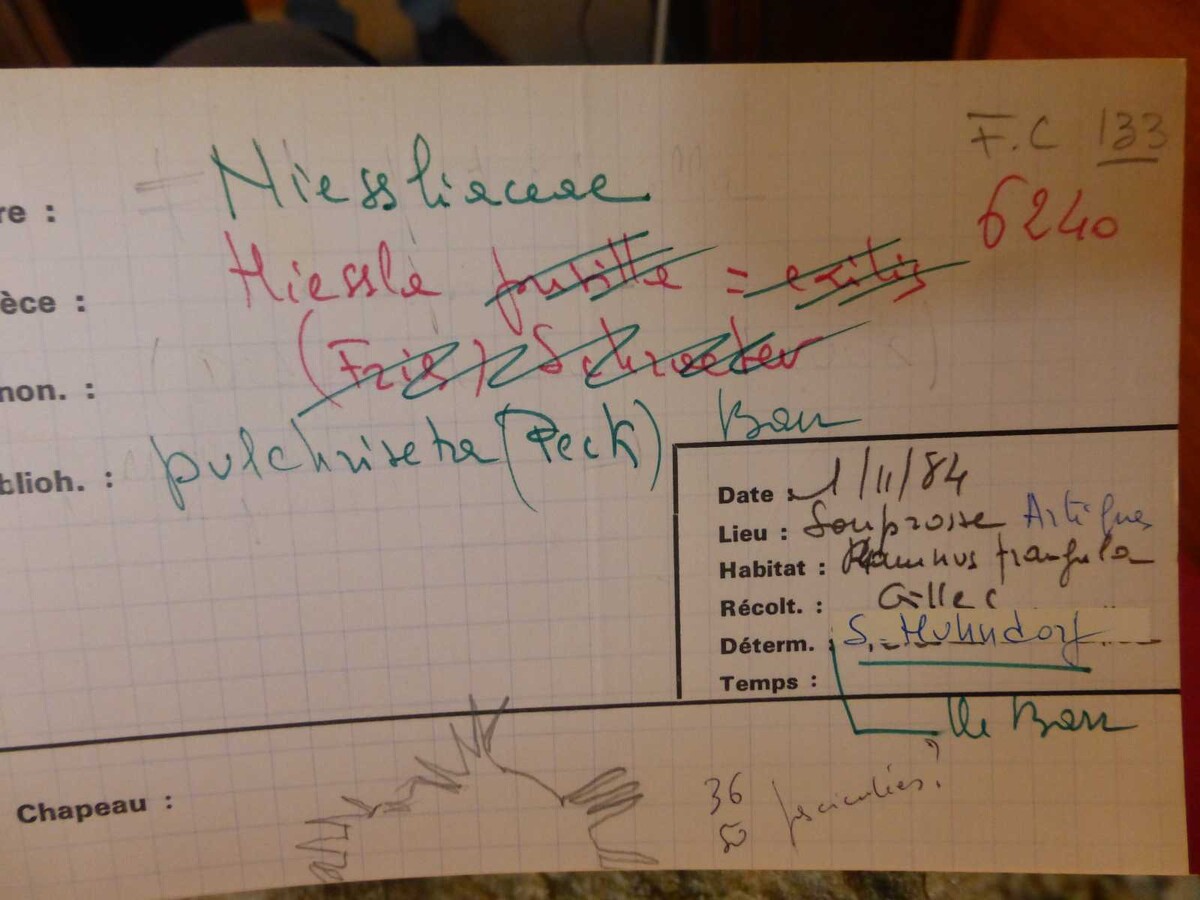 F.C 133
re : Niessliaceae
6240
èce : Niessle pusille = exilis
non. : (Fries) Schroeter
blioh. : pulchriseta (Peck) Barr
Date : 1/11/84
Lieu : Souprosse Artigues
Habitat : Rhamnus frangula
Récolt. : Gilles
Déterm. : S. Huhndorf
Temps :
Me Barr
Chapeau :
36 fasciculées?
50